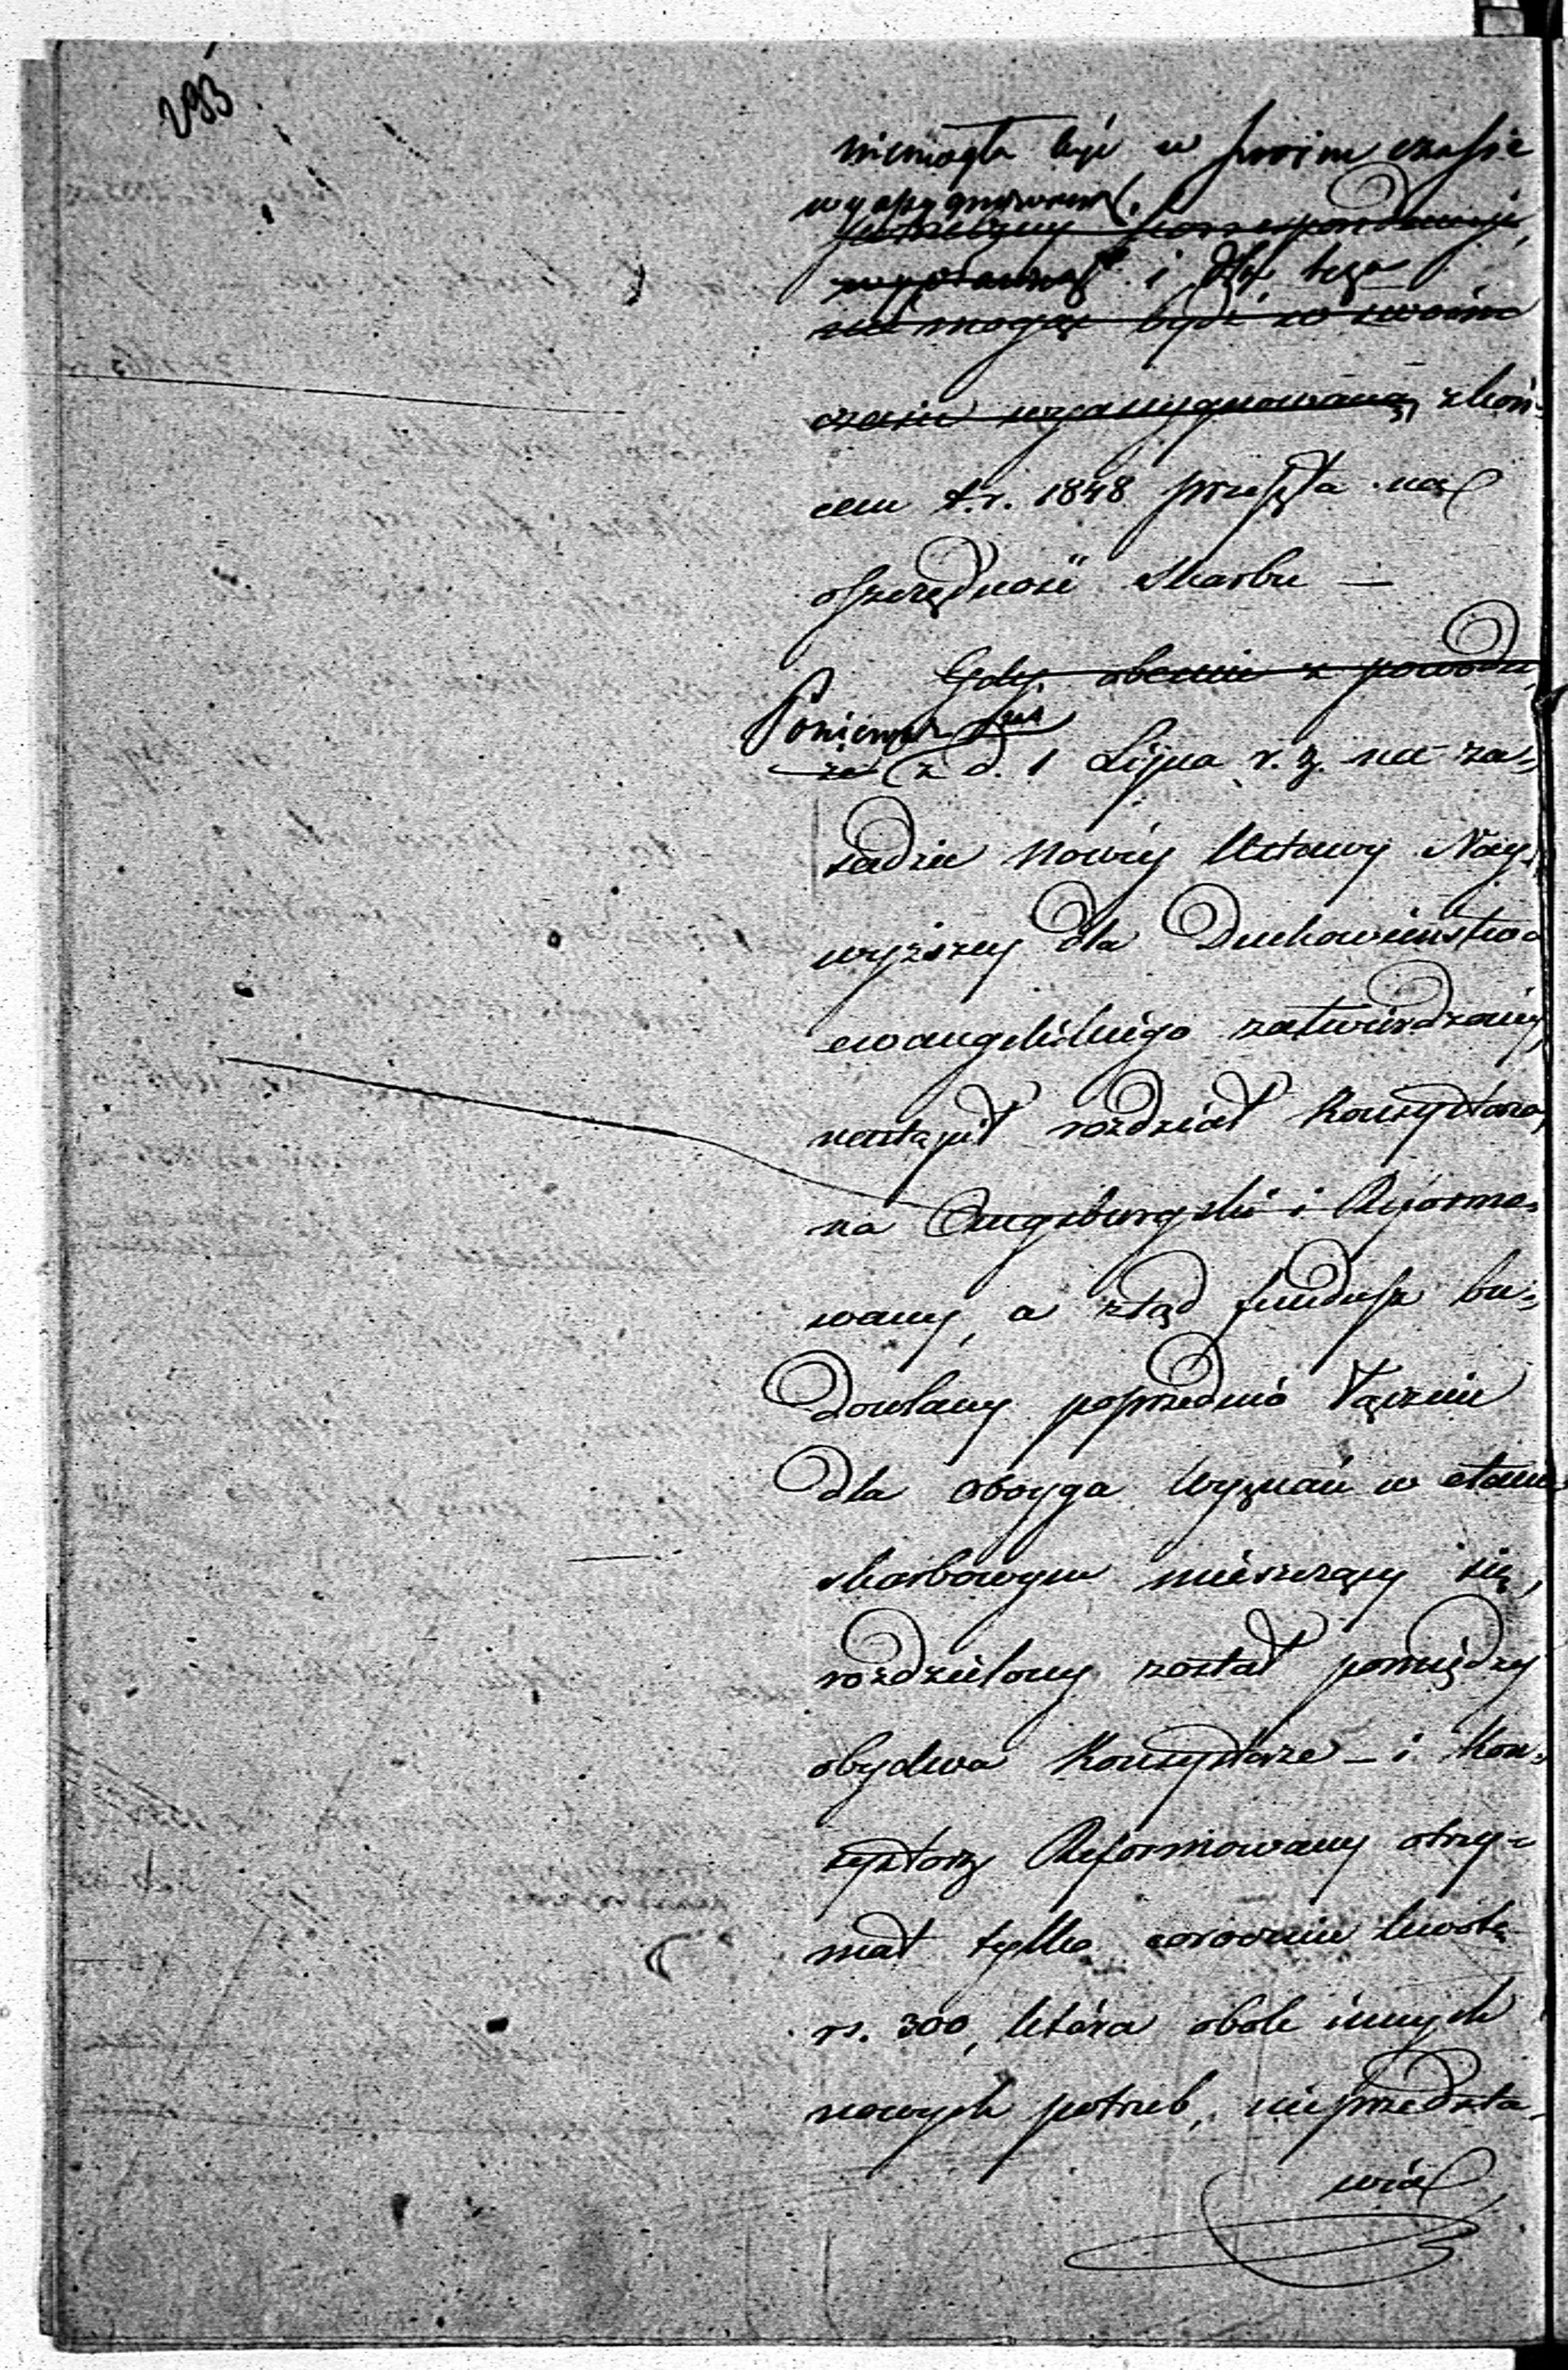 293
niemogła być w swoim czasie
wyassygnowaną,
potrzebnej korrespondencji,
i dla tego
nie mogąc być w swoim
czasie wyassygnowaną, z koń-
cem t.r. 1848 przeszła na
oszczędność skarbu —
Gdy obecnie z powodu
Ponieważ zaś
że z d. 1 Lipca r. z. na za-
sadzie nowéj Ustawy Nay-
wyższéj dla Duchowieństwa
ewangelickiego zatwierdzonéj
nastąpił rozdział Konsystorza
na Augsburgski i Reformo-
wany, a ztąd fundusz bu-
dowlany poprzednio łącznie
dla oboyga wyznań w etacie
skarbowym mieszczący się,
rozdzielony został pomiędzy
obydwa Konsystorze — i Kon-
systorz Reformowany otrzy-
mał tylko corocznie kwotę
rs. 300, która obok innych
nowych potrzeb, nieprzedsta-
wia